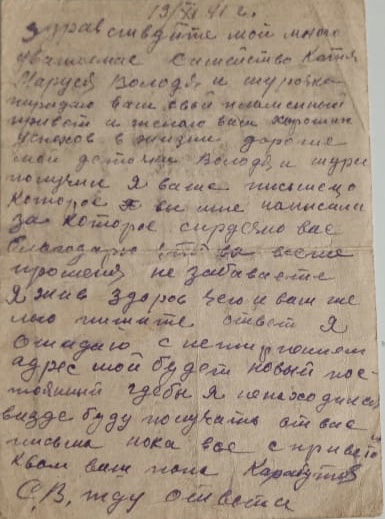 19/XI 41 г.
Здравствуйте мои много
уважаемае Симейство Катя
Маруся Володя и шуровка
передаю вам свой пламенный
привет и желаю вам хороших
успехов в жизни дорогие
мои деточки Володя и шура
получил я ваше письмецо
которое вы мне написали
за которое сирдечно вас
благодарю что вы всеже
прошения не забываете
Я жив здоров чего и вам же
лаю пишите ответ Я
Ожидаю с нетирпением
адрес мой будет новый пос
тоянный гдебы я ненаходился
везде буду получать от вас
письма пока все с привето
К вам ваш папа
С.В, жду ответа